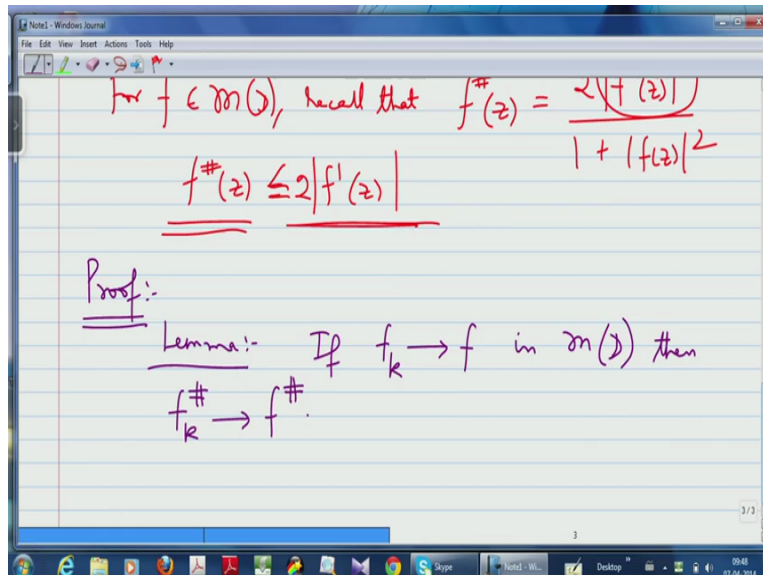 Note1 - Windows Journal
File Edit View Insert Actions Tools Help
For f ∈ m(D), recall that f^#(z) = 2|f'(z)| / 1 + |f(z)|^2
f^#(z) ≤ 2|f'(z)|
Proof:-
Lemma:- If f_k → f in m(D) then
f_k^# → f^#.
3/3
3
Skype
Note1 - Wi...
Desktop
09:48
07-04-2014